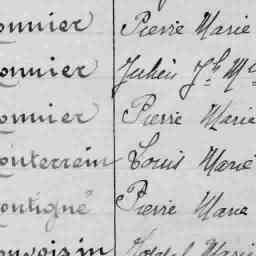 onnier Pierre Marie
onnier Julien Jh Me
onnier Pierre Marie
onterrein Louis Marie
ontigné Pierre Marie
onvoisin Joseph Marie